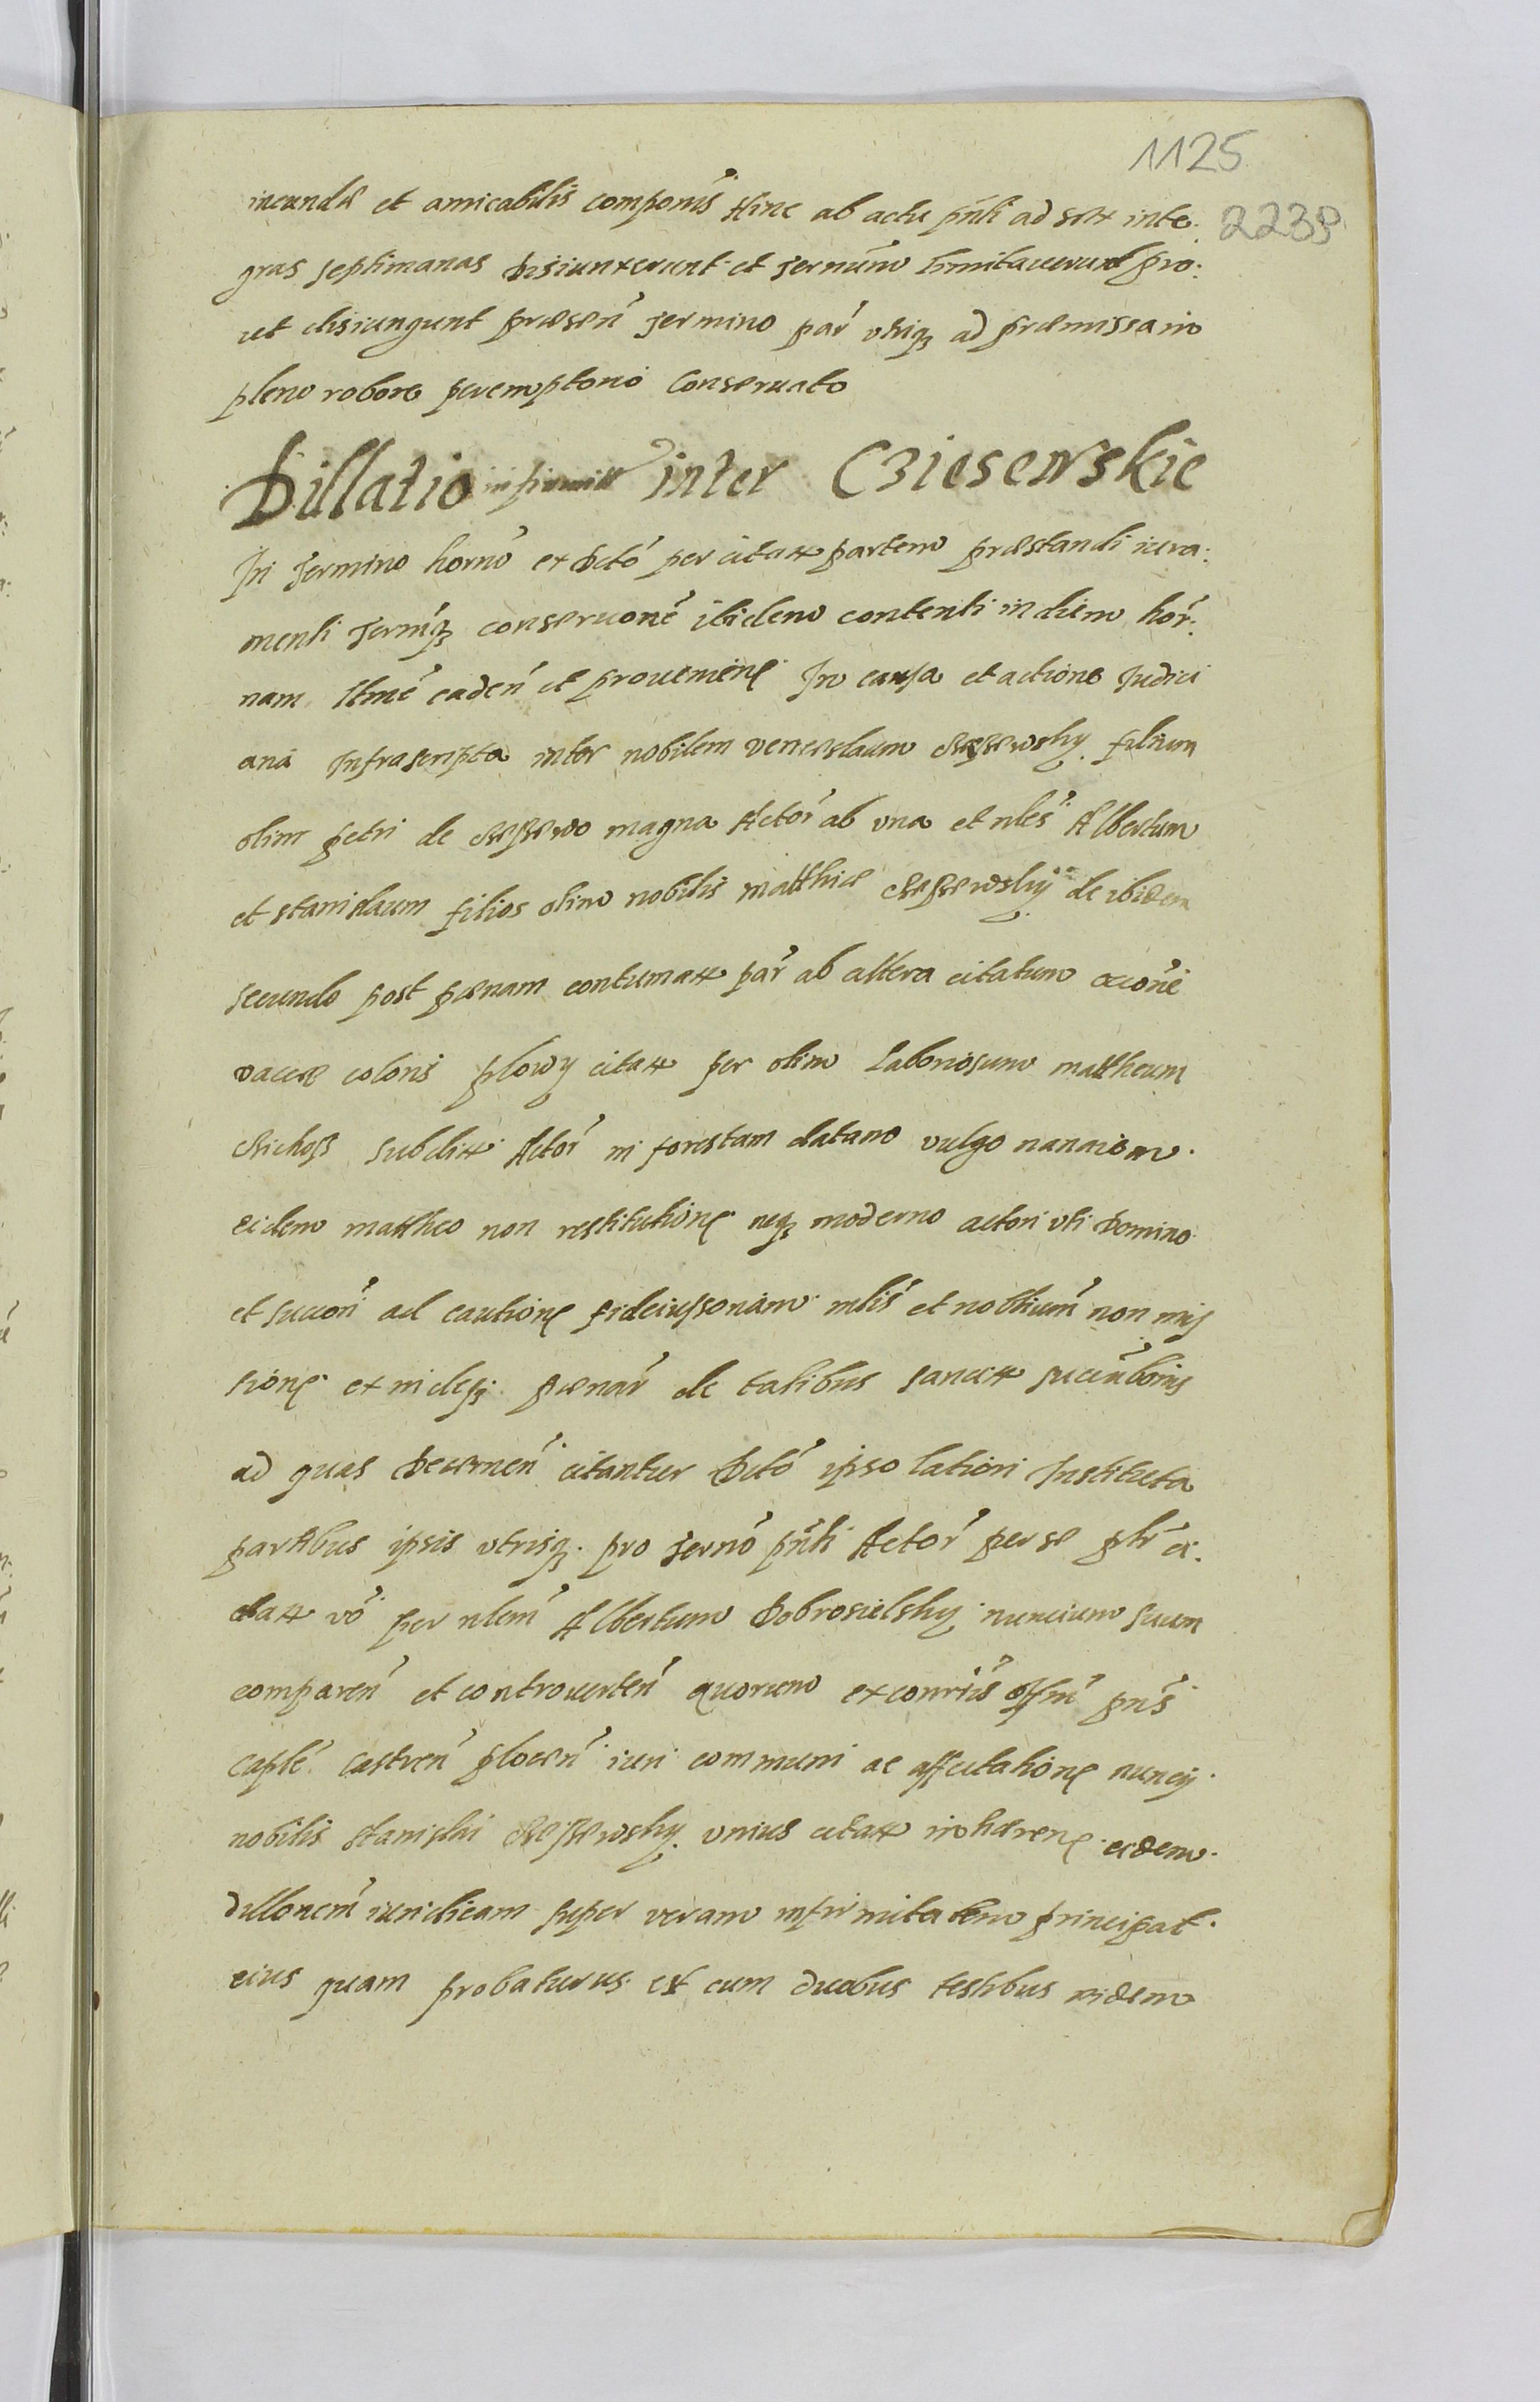 1125
2239
ineundæ et amicabilis componis Hinc ab actu pnti ad sex inte:
gras septimanas disiunxerunt et terminum limitaverunt pro:
ut disiungunt præsen termino par utriq3 ad præmissa in
pleno robore peremptorio conservato
Dillatio infirmitt inter Cziesewskie
In termino horno ex dcto per citatt partem præstandi iura:
menti termiq3 conservone ibidem contenti in diem hor:
nam caden et provenien In causa et actione Judici
aria Infrascripta inter nobilem Venceslaum filium
olim petri de magna Actor ab una et nles Albertum
et stanislaum filios olim nobilis matthiæ de ibidem
secundo post pænam contumatt par ab altera citatum
vaccæ coloris plowy citatt per olim Laboriosum mattheum
subditt Actor in forestam datam vulgo
eidem mattheo non restitutione neq3 moderno actori uti domino
et succori ad cautione fideiussoriam nilis et nobilium non mis
sione ex indeq3 pænar de talibus sancitt succubonis
ad quas decernen citantur dcto ipso latiori Instituta
partibus ipsis utrisq3 pro termo pnti Actor per se ptr ci:
tatt vo per nlem Albertum Dobrosielsky nuncium suum
comparen et controverten quorum ex conriis offm pns
caple castren plocen iuri communi ac affectatione nuncij
nobilis stanislai unius citatt inhæren eidem
dillonem iuridicam super veram infirmitatem principal
eius quam probaturus est cum duobus testibus eidem